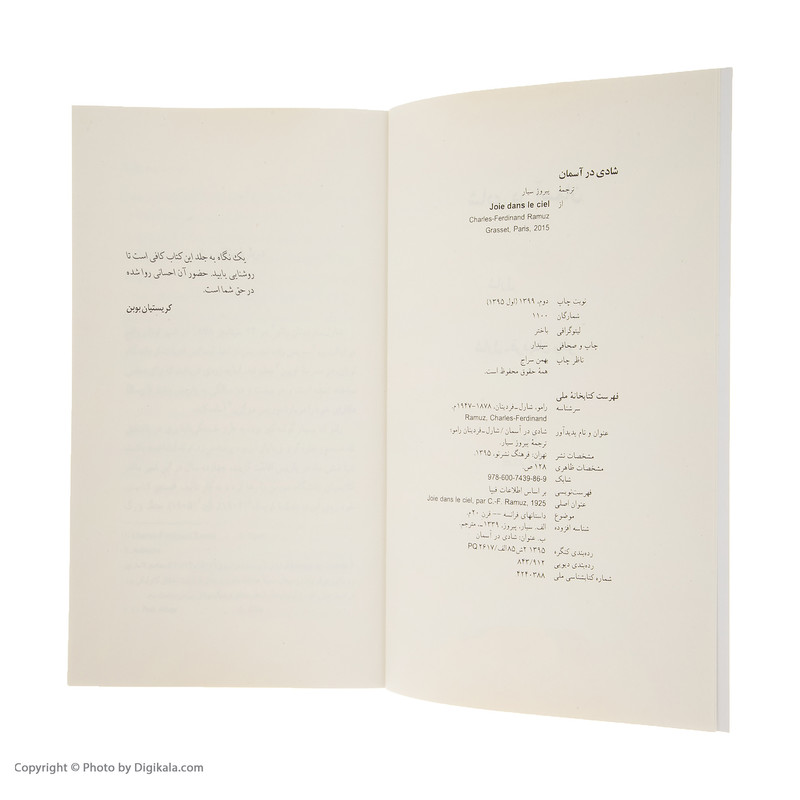 شادی در آسمان
ترجمهٔ پیروز سیار
از Joie dans le ciel
Charles-Ferdinand Ramuz
Grasset, Paris, 2015
نوبت چاپ دوم، ۱۳۹۹ (اول ۱۳۹۵)
شمارگان ۱۱۰۰
لیتوگرافی باختر
چاپ و صحافی سپیدار
ناظر چاپ بهمن سراج
همهٔ حقوق محفوظ است.
فهرست کتابخانهٔ ملی
سرشناسه رامو، شارل-فردینان، ۱۸۷۸-۱۹۴۷م.
Ramuz, Charles-Ferdinand
عنوان و نام پدیدآور شادی در آسمان / شارل-فردینان رامو؛
ترجمهٔ پیروز سیار.
مشخصات نشر تهران: فرهنگ نشرنو، ۱۳۹۵.
مشخصات ظاهری ۱۲۸ ص.
شابک 978-600-7439-86-9
فهرست‌نویسی بر اساس اطلاعات فیپا
عنوان اصلی Joie dans le ciel, par C.-F. Ramuz, 1925
موضوع داستانهای فرانسه -- قرن ۲۰م.
شناسه افزوده الف. سیار، پیروز، ۱۳۳۹-، مترجم.
ب. عنوان: شادی در آسمان
رده‌بندی کنگره ۱۳۹۵ ۲ش۸۵الف/PQ ۲۶۱۷
رده‌بندی دیویی ۸۴۳/۹۱۲
شماره کتابشناسی ملی ۴۲۴۰۳۸۸
یک نگاه به جلد این کتاب کافی است تا
روشنایی یابید. حضور آن احسانی روا شده
در حق شما است.
کریستیان بوبن
Copyright © Photo by Digikala.com